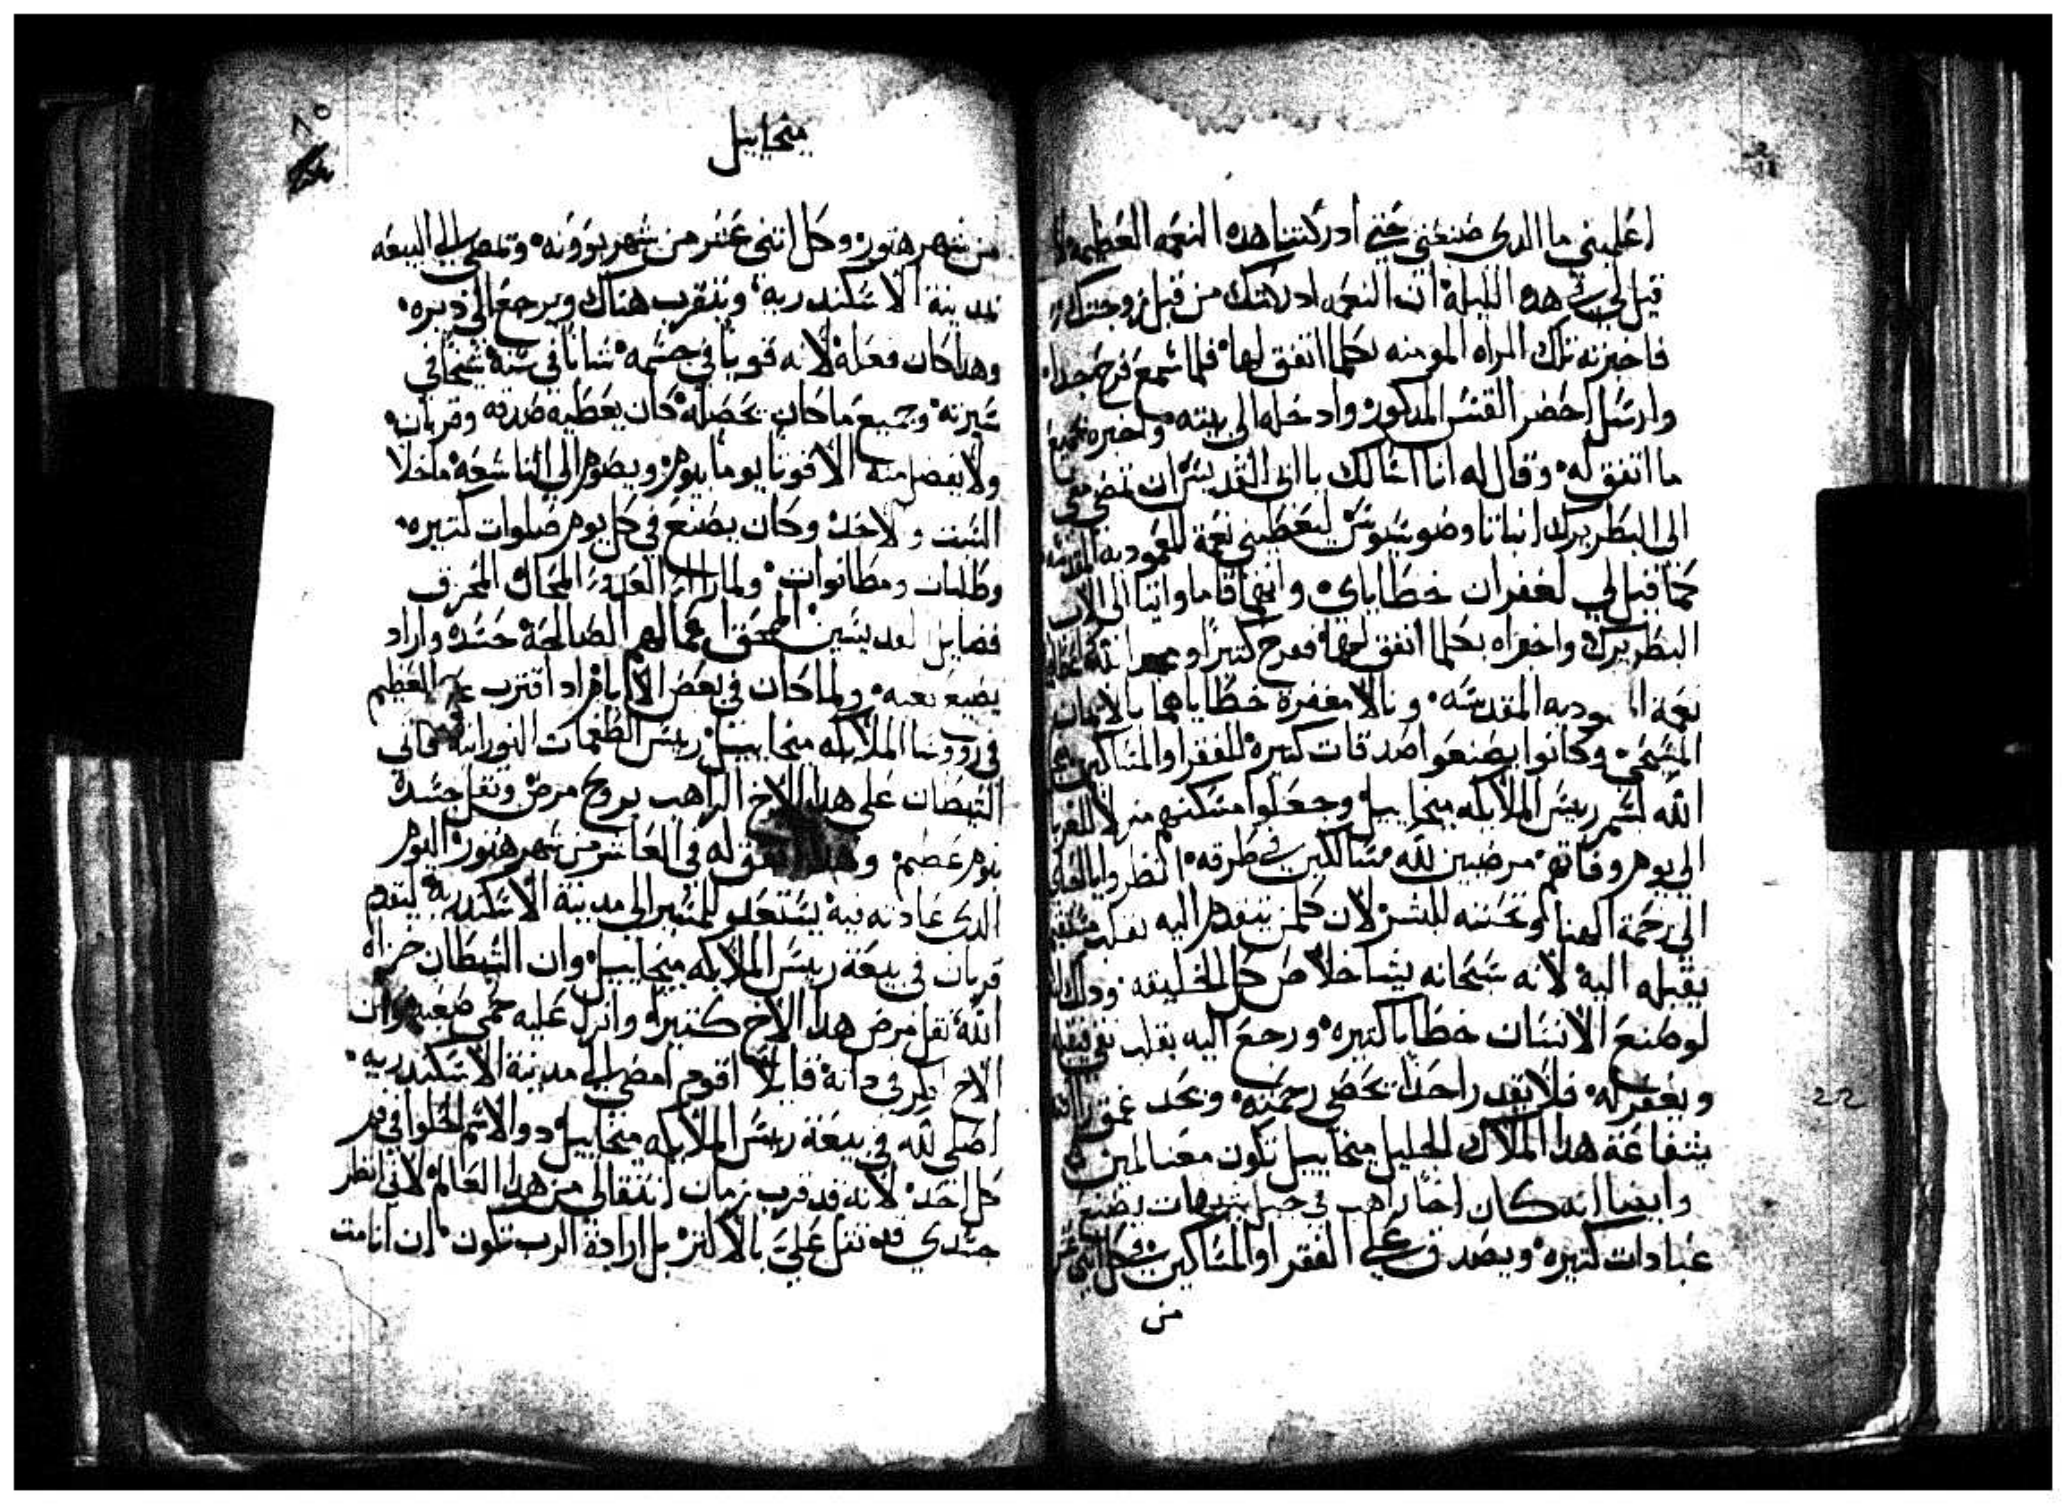 اعلميني ما الدى صنعتى حتي ادركتنا هده النعمه العظيمه
قيل لي في هده الليلة ان النعمه ادركتك من قبل زوجتك
فاخبرته تلك المراه المومنه بكلما اتفق لها فلما سمع فرح جدا
وارسل احضر القس المدكور وادخله الي بيته واخبره بجميع
ما اتفق له وقال له انا اسالك يا ابي القديس ان تمضي معي
الى البطريرك انباتاوضوسيوس ليعطيني نعمة المعموديه المقدسه
كما قيل لي لغفران خطاياي وانهما قاما واتيا الى الاب
البطريرك واخبراه بكلما اتفق لهما ففرح كتيرا
نعمة المعموديه المقدسه ونالا مغفرة خطاياهما بالايمان
المسيحي وكانوا يصنعوا صدقات كتيره للفقرا والمساكين
الله لسم رييس الملايكه ميخاييل وجعلوا مسكنهم منزلا للغربا
الي يوم وفاتهم مرضيين لله مسالكين في طرقه انظروا يا
الي رحمة الهنا وتحننه للبشر لان كلمن يتقدم اليه بقلب
يقبله اليه لانه سبحانه يشا خلاص كل الخليقه
لو صنع الانسان خطايا كتيره ورجع اليه بقلب
ويغفر له فلا يقدر احدا يحصي رحمته ونجد عمق
بشفاعة هدا الملاك الجليل ميخاييل تكون معنا امين
وايضا انه كان اخا راهب في جبل يصنع
عبادات كتيره ويصدق علي الفقرا والمساكين في كل اتني عشر
من
٨٥
ميخاييل
من شهر هتور وكل اتني عشر من شهر بوونه وتمضي الي البيعه
بمدينة الاسكندريه ويتقرب هناك ويرجع الي ديره
وهدا كان فعله لانه قويا في جسمه شابا في سنه شيخا في
سيرته وجميع ما كان يحصله كان يعطيه صدقه وقربان
ولا يفضل منه الا قوتا يوما بيوم ويصوم الي التاسعه ماخلا
السبت والاحد وكان يصنع في كل يوم صلوات كتيره
وطلبات ومطانوات ولما راا المحال المحرف
فضايل القديسين اعمالهم الصالحة حسده واراد
يضيع تعبه ولما كان في بعض الايام اد اقترب عيد العظيم
في رووسا الملايكه ميخاييل رييس الطغمات النورانيه فاتي
الشيطان علي هدا الاخ الراهب بروح مرض وتقل جسده
بوهم عظيم له في العاشر من شهر هتور اليوم
الدي عادته فيه يستعد للمسير الى مدينة الاسكندريه ليقدم
قربان في بيعة رييس الملايكه ميخاييل وان الشيطان خزاه
الله تقل مرض هدا الاخ كتيرا وانزل عليه حمي صعبه وان
الاخ في داته قايلا اقوم امضي الي مدينة الاسكندريه
اصلي لله في بيعة رييس الملايكه ميخاييل دو الاسم الحلوا في فم
كل احد لانه قد قرب زمان انتقالي من هدا العالم لاني انظر
جسدي قد تقل علي بالاكتر بل ارادة الرب تكون ان انا مت